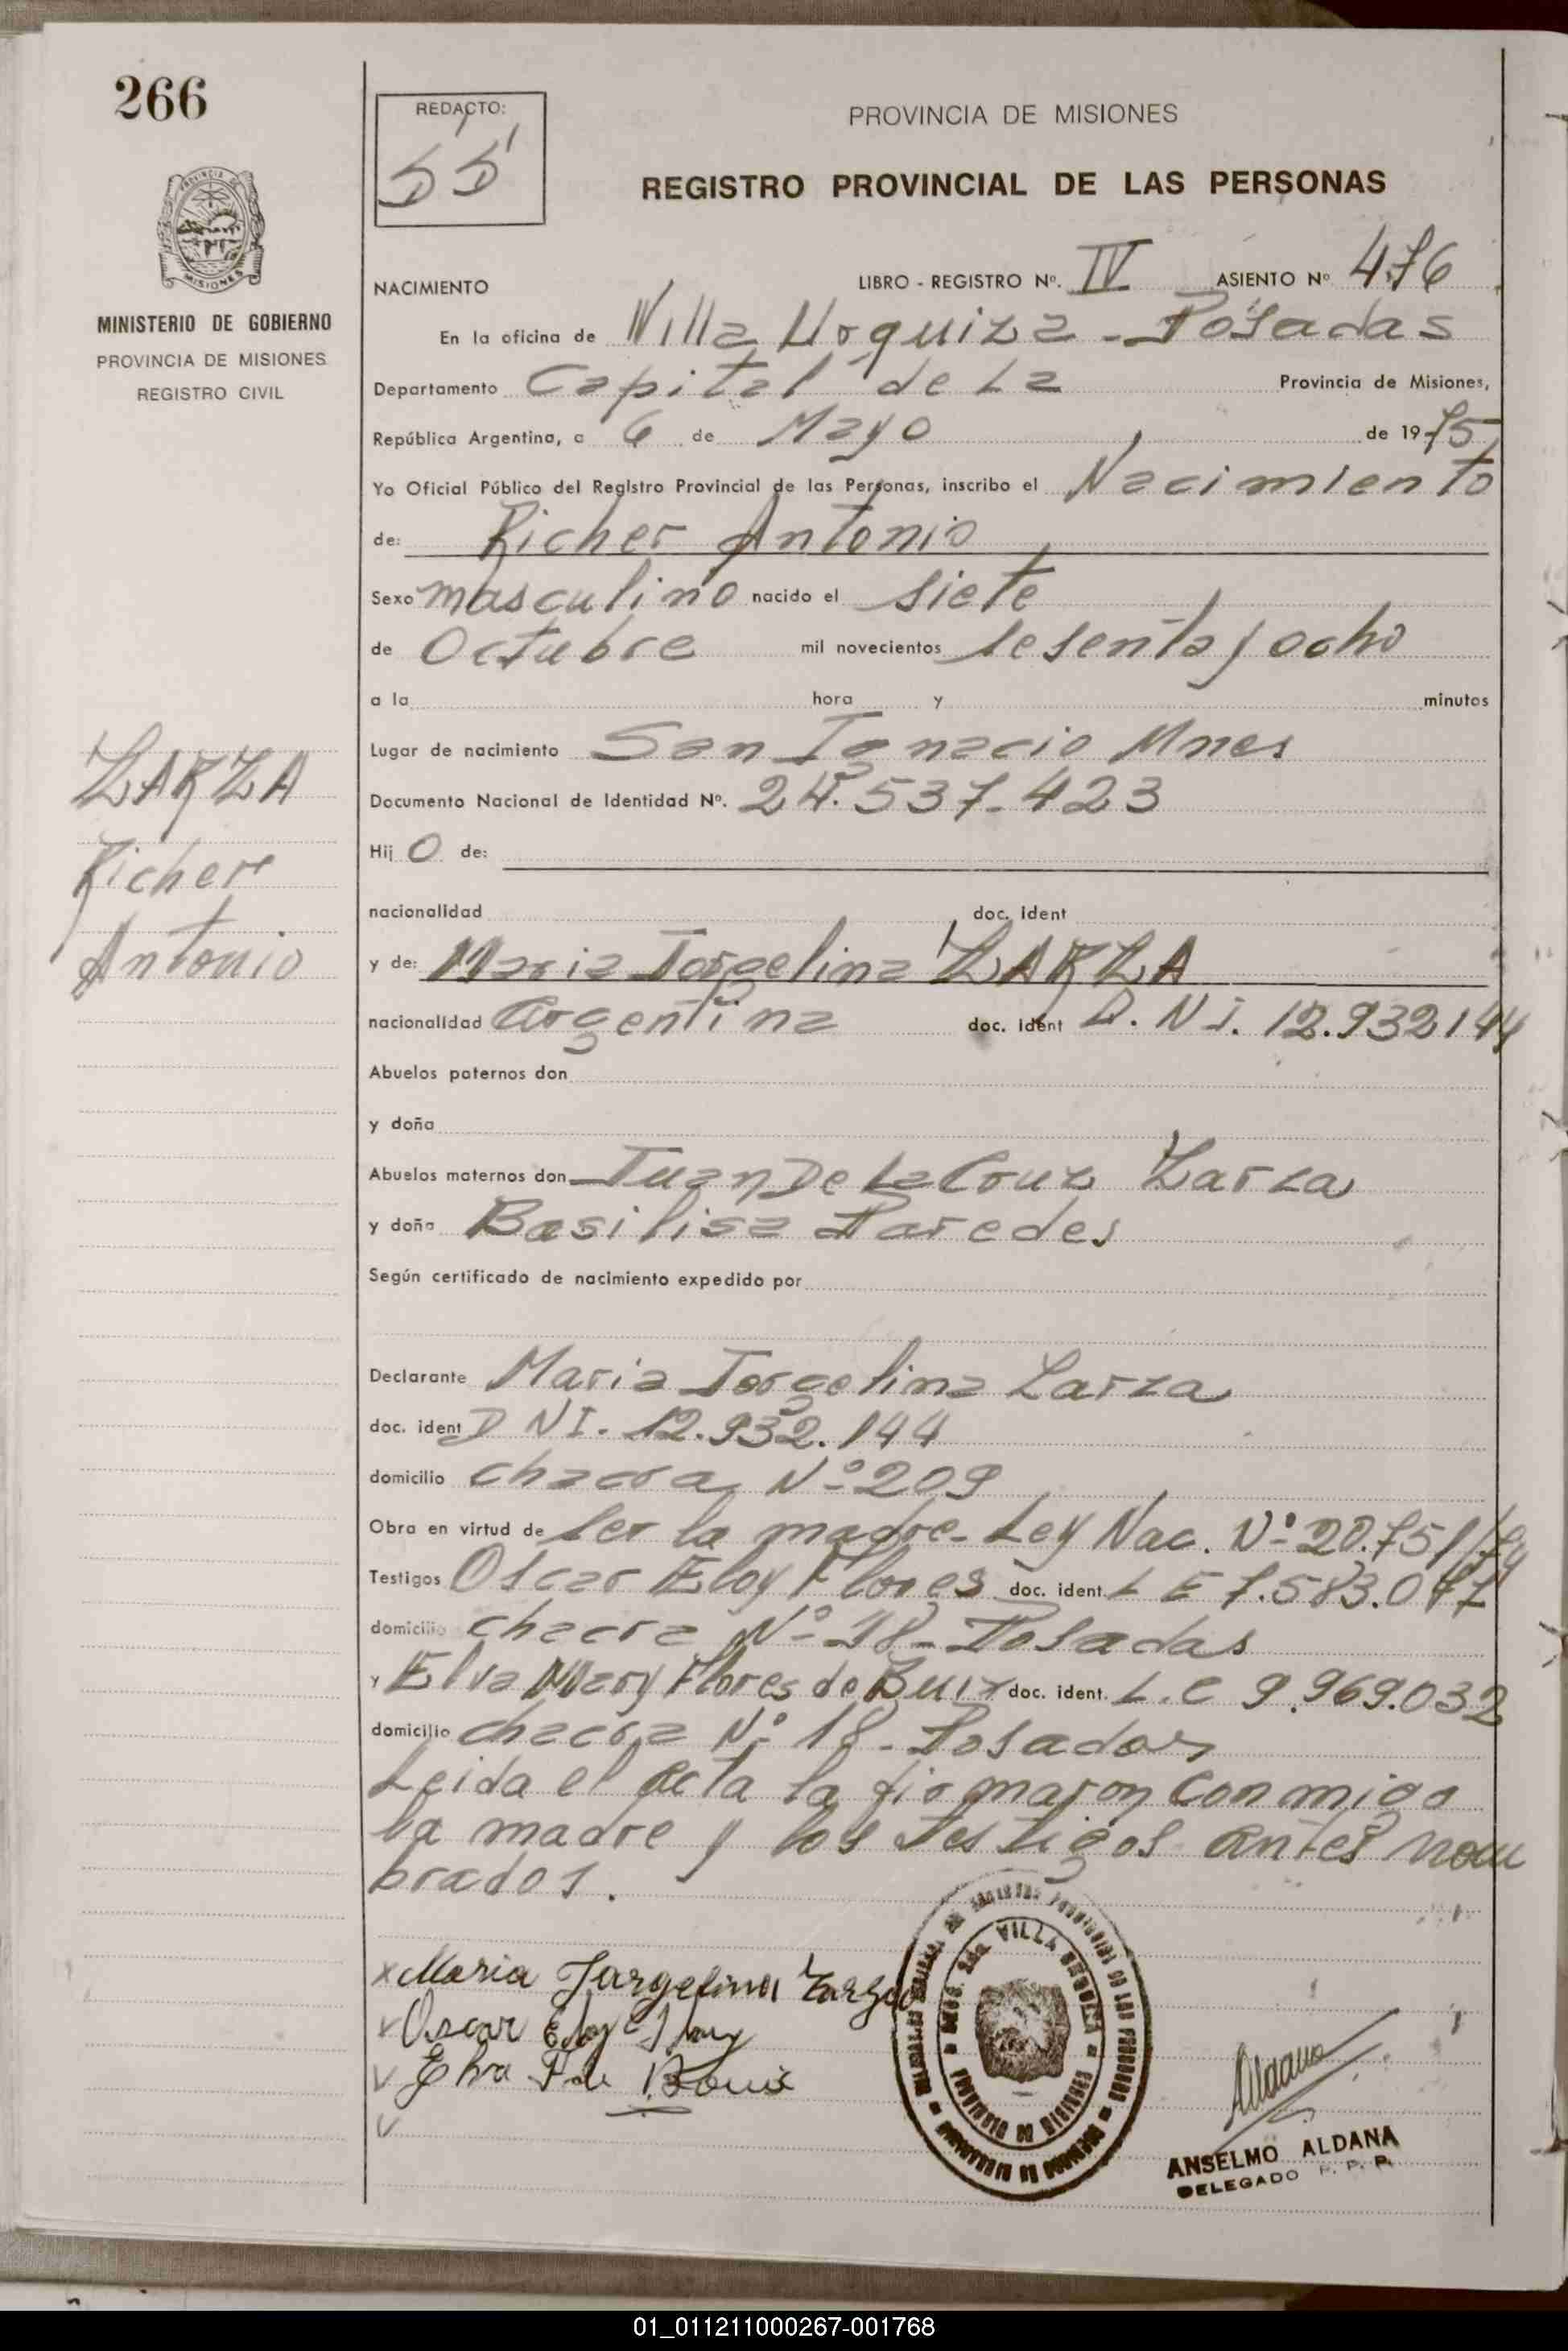 266
REDACTO:
PROVINCIA DE MISIONES
REGISTRO PROVINCIAL DE LAS PERSONAS
PROVINCIA DE
MISIONES
MINISTERIO DE GOBIERNO
PROVINCIA DE MISIONES
REGISTRO CIVIL
NACIMIENTO LIBRO - REGISTRO Nº. IV ASIENTO Nº 476
En la oficina de Villa Urquiza - Posadas
Departamento Capital de La Provincia de Misiones,
República Argentina, a 6 de Mayo de 1975
Yo Oficial Público del Registro Provincial de las Personas, inscribo el Nacimiento
de: Richer Antonio
Sexo masculino nacido el siete
de Octubre mil novecientos sesenta y ocho
a la hora y minutos
Lugar de nacimiento San Ignacio Mnes
Documento Nacional de Identidad Nº. 24.537.423
Hij O de:
nacionalidad doc. ident
y de: Maria Jorgelina ZARZA
nacionalidad Argentina doc. ident D.N.I. 12.932144
Abuelos paternos don
y doña
Abuelos maternos don Juan De La Cruz Zarza
y doña Basilisa Paredes
Según certificado de nacimiento expedido por
Declarante Maria Jorgelina Zarza
doc. ident D NI. 12.932.144
domicilio chacra Nº 209
Obra en virtud de ser la madre - Ley Nac. Nº 20.751/74
Testigos Oscar Eloy Flores doc. ident. L E 7.583.047
domicilio chacra Nº 18 - Posadas
y Elva Mary Flores de Buix doc. ident. L.C 9.969.032
domicilio chacra Nº 18 - Posadas
Leida el acta la firmaron conmigo
la madre y los testigos antes nom
brados.
ZARZA
Richer
Antonio
x Maria Jorgelina Zarza
Oscar Eloy Flores
Elva F de Bouix
VILLA URQUIZA
PROVINCIA DE MISIONES
Aldana
ANSELMO ALDANA
DELEGADO R. P. P.
01_011211000267-001768